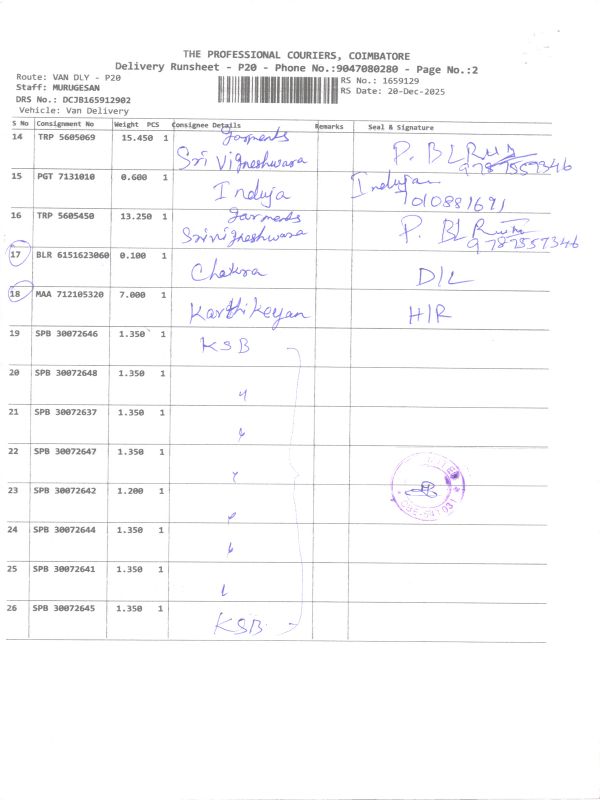 THE PROFESSIONAL COURIERS, COIMBATORE
Delivery Runsheet - P20 - Phone No.:9047080280 - Page No.:2
Route: VAN DLY - P20
RS No.: 1659129
Staff: MURUGESAN
RS Date: 20-Dec-2025
DRS No.: DCJB165912902
Vehicle: Van Delivery
S No Consignment No Weight PCS Consignee Details Remarks Seal & Signature
14 TRP 5605069 15.450 1 garments
Sri Vigneshwara
9787557346
15 PGT 7131010 0.600 1 Induja
Indujan
7010881691
16 TRP 5605450 13.250 1 garments
Srivigneshwara
9787557346
17 BLR 6151623060 0.100 1 Chakra D/L
18 MAA 712105320 7.000 1 Karthikeyan H/R
19 SPB 30072646 1.350 1 KSB
20 SPB 30072648 1.350 1 "
21 SPB 30072637 1.350 1 "
22 SPB 30072647 1.350 1 "
23 SPB 30072642 1.200 1 "
24 SPB 30072644 1.350 1 "
25 SPB 30072641 1.350 1 "
26 SPB 30072645 1.350 1 KSB